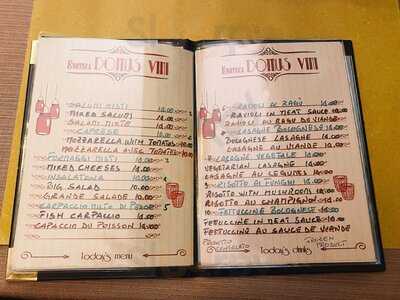 Enoteca DOMUS VINI
SALUMI MISTI 14.00
MIXED SALUMI 14.00
SALAMI MIXTE 14.00
CAPRESE 10.00
MOZZARELLA WITH TOMATOES 10.00
MOZZARELLA AVEC TOMATES 10.00
FORMAGGI MISTI 14.00
MIXED CHEESES 14.00
INSALATONA 10.00
BIG SALAD 10.00
GRANDE SALADE 10.00
CARPACCIO MISTO DI PESCE
FISH CARPACCIO 18.00
CAPACCIO DU POISSON 18.00
Today's menu
Enoteca DOMUS VINI
RAVIOLI AL RAGU 14.00
RAVIOLI IN MEAT SAUCE 14.00
RAVIOLI AU RAGU DE VIANDE
LASAGNE BOLOGNESE 10.00
BOLOGNESE LASAGNE 10.00
LASAGNE AU VIANDE 10.00
LASAGNE VEGETALE 10.00
VEGETARIAN LASAGNE 10.00
LASAGNE AU LEGUMES 10.00
RISOTTO AI FUNGHI 10.00
RISOTTO WITH MUSHROOM
RISOTTO AU CHAMPIGNON
FETTUCINE BOLOGNESE 10.00
FETUCCINE IN MEAT SAUCE 10.00
FETTUCCINE AU SAUCE DE VIANDE
PRODOTTO CONGELATO
FROZEN PRODUCT
Today's drinks